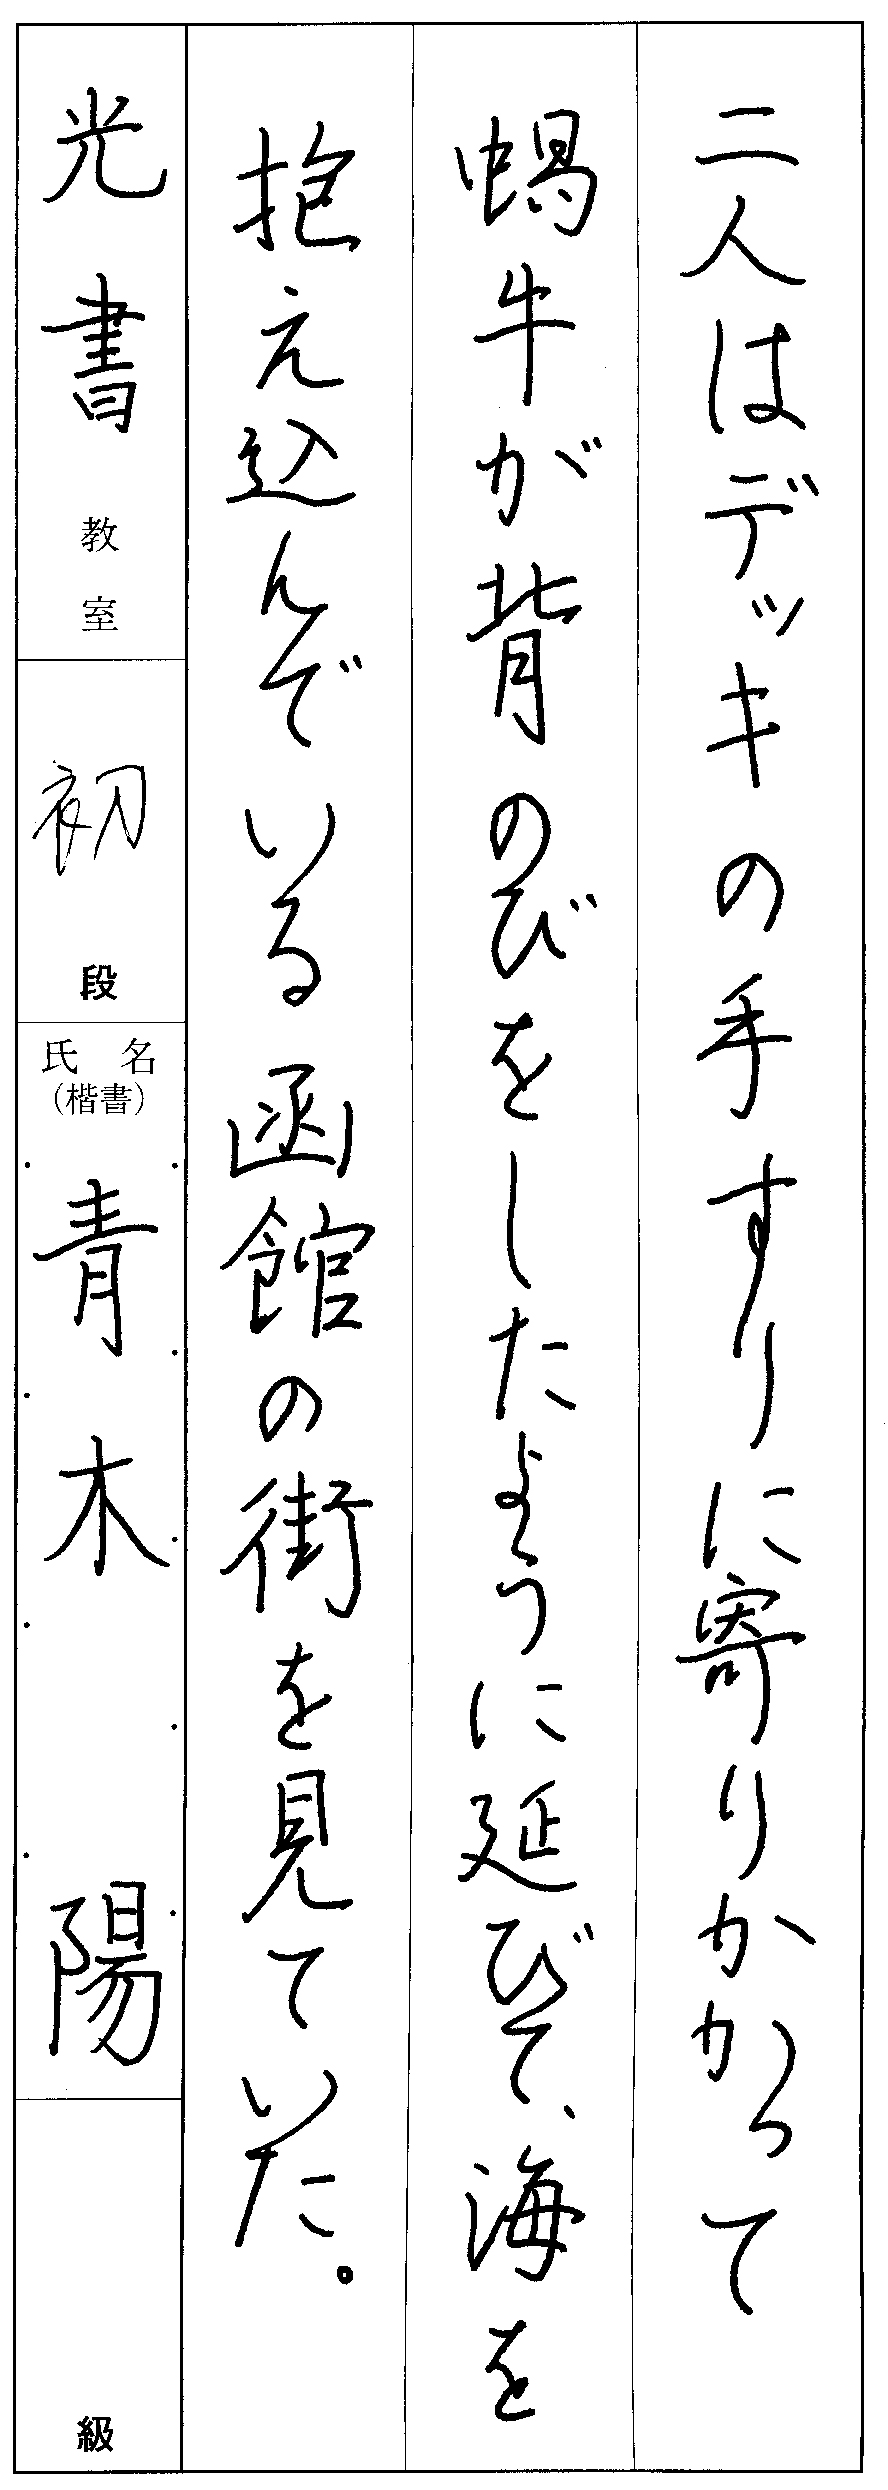 二人はデッキの手すりに寄りかかって
蝸牛が背のびをしたように延びて、海を
抱え込んでいる函館の街を見ていた。
光書教室
初段
氏名
(楷書)
青木陽
級